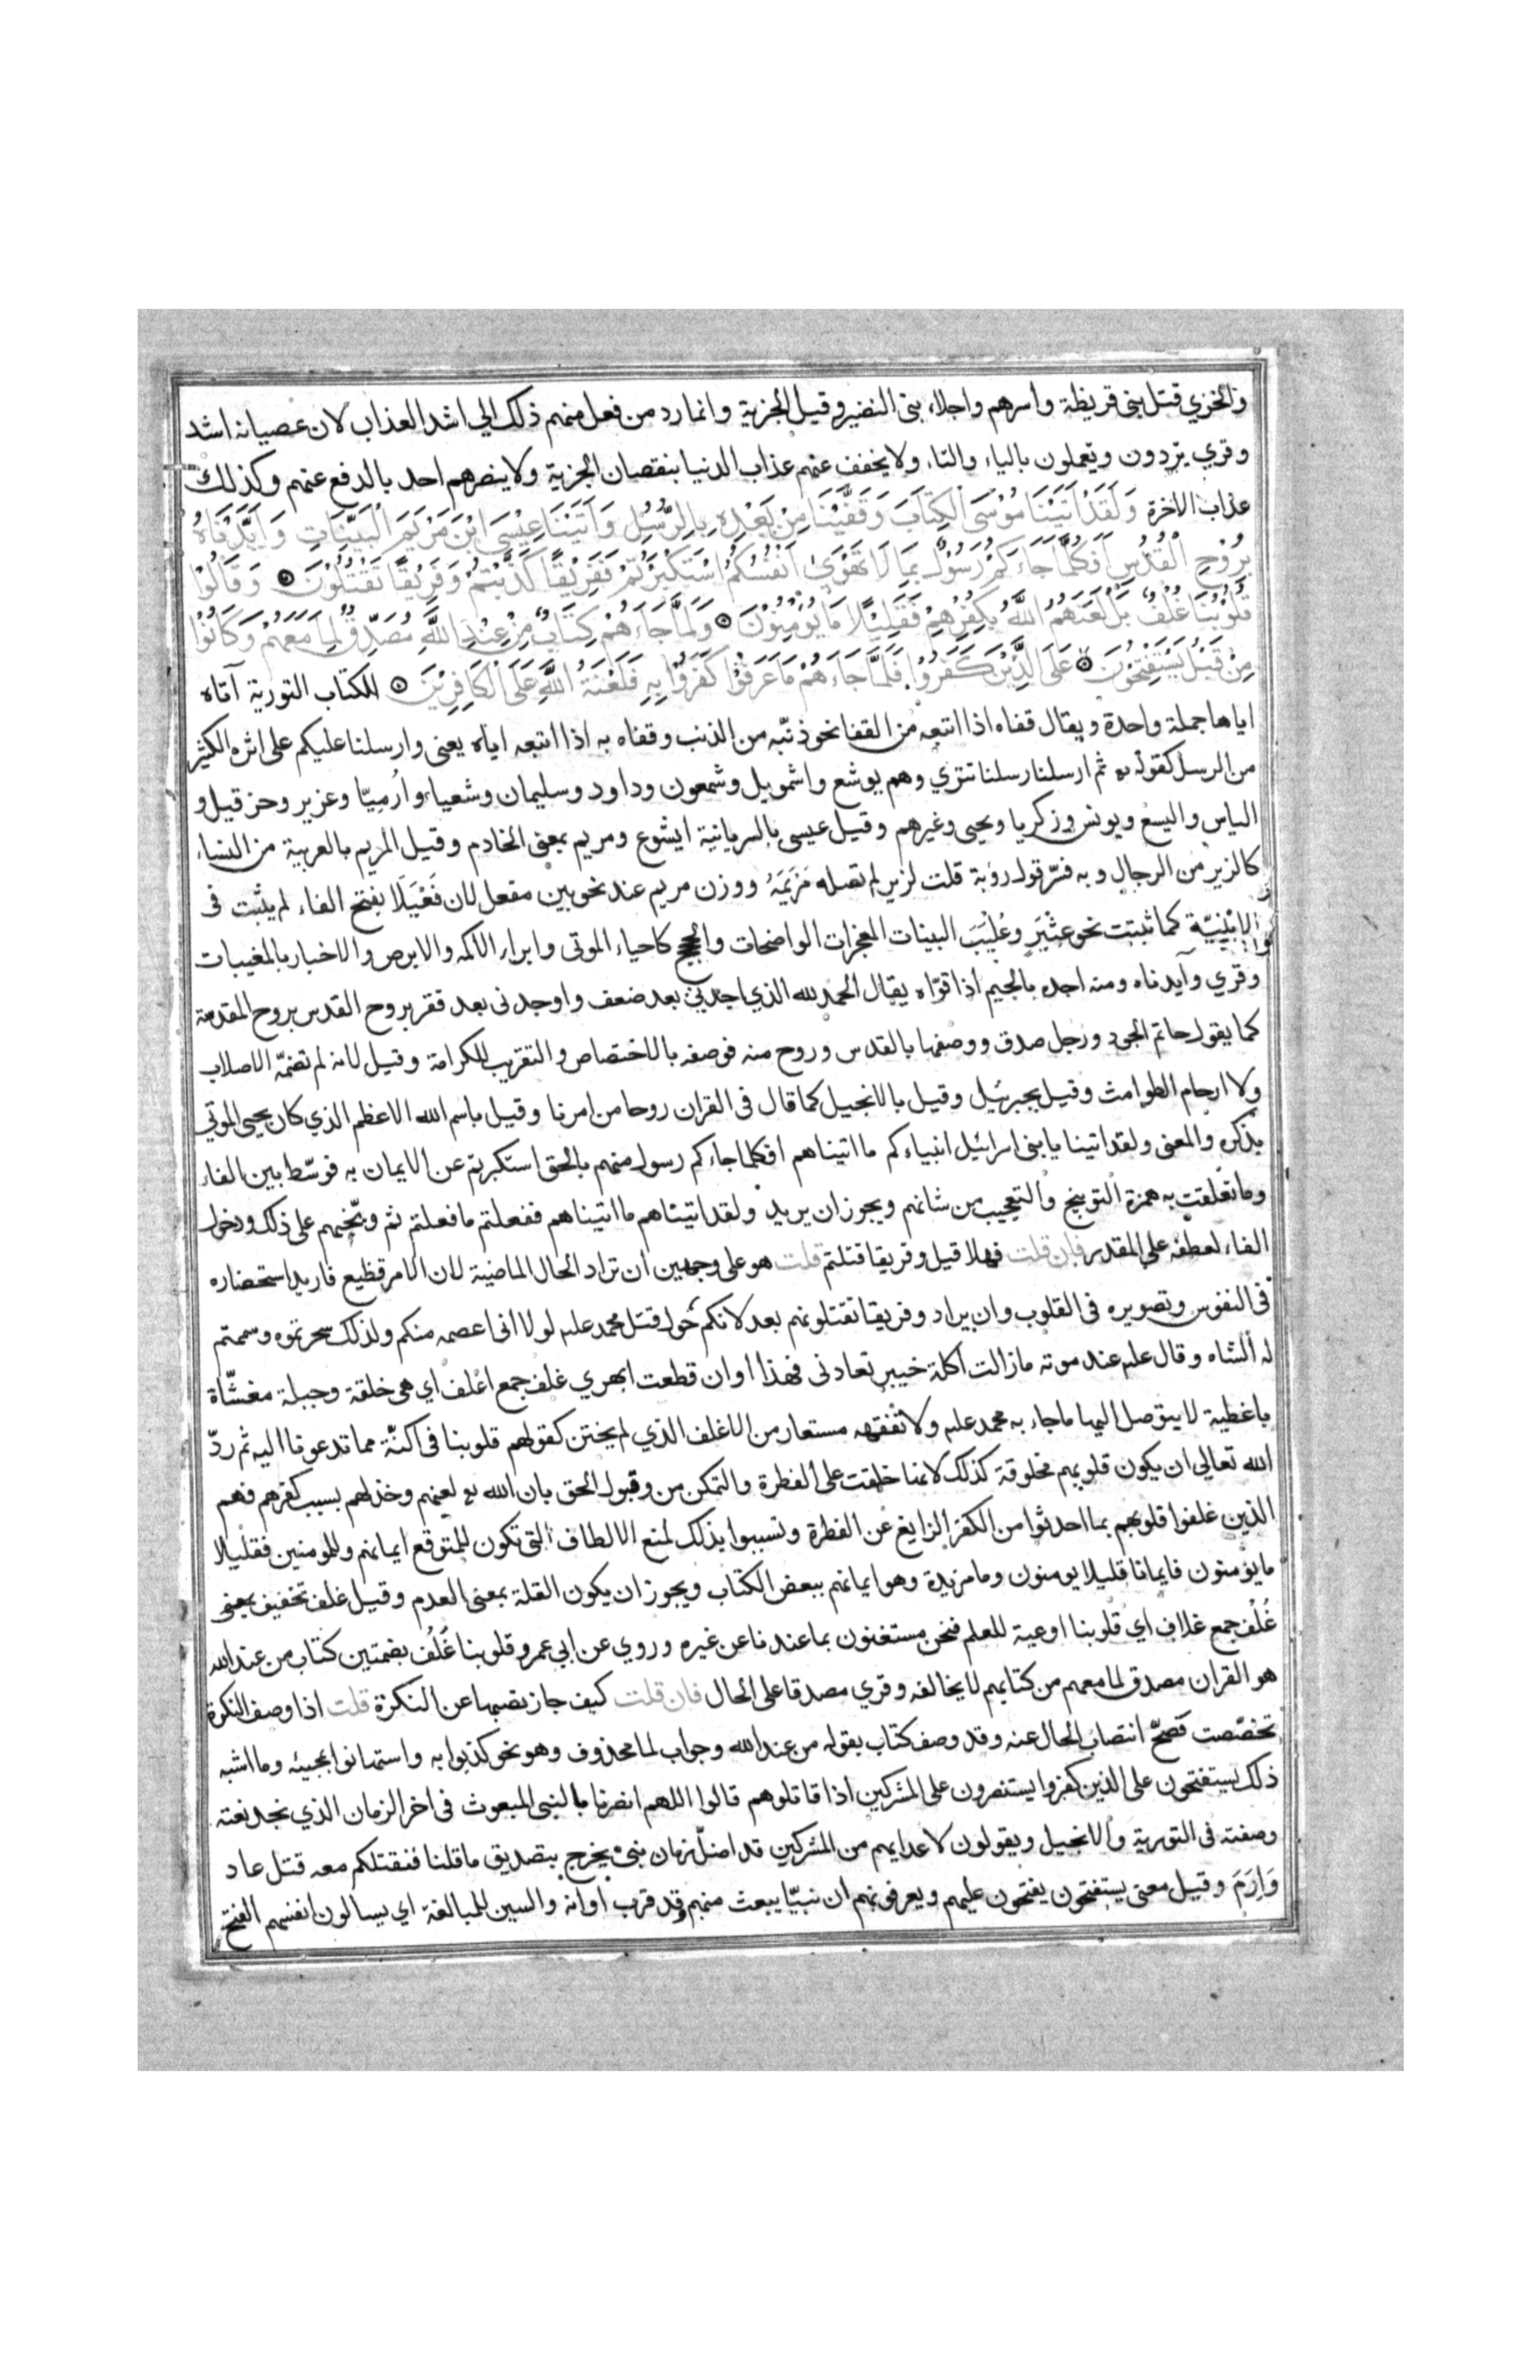 والخزي قتل بني قريظة واسرهم واجلاء بني النضير وقيل الجزية وانما رد من فعل منهم ذلك الي اشد العذاب لان عصيانه اشد
وقري يردون ويعملون بالياء والتاء ولا يخفف عنهم عذاب الدنيا بنقصان الجزية ولا ينصرهم احد بالدفع عنهم وكذلك
عذاب الاخرة وَلَقَدْ اٰتَيْنَا مُوْسَى الْكِتَابَ وَقَفَّيْنَا مِنْ بَعْدِهِ بِالرُّسُلِ وَاٰتَيْنَا عِيْسَى ابْنَ مَرْيَمَ الْبَيِّنَاتِ وَاَيَّدْنَاهُ
بِرُوْحِ الْقُدُسِ اَفَكُلَّمَا جَاءَكُمْ رَسُوْلٌ بِمَا لَا تَهْوَي اَنْفُسُكُمُ اسْتَكْبَرْتُمْ فَفَرِيْقًا كَذَّبْتُمْ وَفَرِيْقًا تَقْتُلُوْنَ وَقَالُوْا
قُلُوْبُنَا غُلْفٌ بَلْ لَعَنَهُمُ اللّٰهُ بِكُفْرِهِمْ فَقَلِيْلًا مَا يُؤْمِنُوْنَ وَلَمَّا جَاءَهُمْ كِتَابٌ مِنْ عِنْدِ اللّٰهِ مُصَدِّقٌ لِمَا مَعَهُمْ وَكَانُوْا
مِنْ قَبْلُ يَسْتَفْتِحُوْنَ عَلَى الَّذِيْنَ كَفَرُوْا فَلَمَّا جَاءَهُمْ مَا عَرَفُوْا كَفَرُوْا بِهِ فَلَعْنَةُ اللّٰهِ عَلَى الْكَافِرِيْنَ الكتاب التورية آتاه
اياها جملة واحدة ويقال قفاه اذا اتبعه من القفا نحو ذنبه من الذنب وقفاه به اذا اتبعه اياه يعني وارسلنا عليكم على اثره الكثير
من الرسل كقوله ثم ارسلنا رسلنا تتري وهم يوشع واشمويل وشمعون وداود وسليمان وشعياء وارميا وعزير وحزقيل و
الياس واليسع ويونس وزكريا ويحيى وغيرهم وقيل عيسى بالسريانية ايشوع ومريم بمعنى الخادم وقيل المريم بالعربية من النساء
كالزير من الرجال وبه فسر قول رؤبة قلت لزير لم تصله مريمه ووزن مريم عند نحويين مفعل لان فعيلا بفتح الفاء لم يثبت في
الابنية كما ثبتت نحو عثير وعليب البينات المعجزات الواضحات والحجج كاحياء الموتى وابراء الاكمه والابرص والاخبار بالمغيبات
وقري وآيدناه ومنه اجده بالجيم اذا قواه يقال الحمد لله الذي اجدني بعد ضعف واوجدني بعد فقر بروح القدس بروح المقدسة
كما يقول حاتم الجود ورجل صدق ووصفها بالقدس وروح منه فوصفه بالاختصاص والتقريب للكرامة وقيل لانه لم تضمه الاصلاب
ولا ارحام الطوامث وقيل بجبرئيل وقيل بالانجيل كما قال في القران روحا من امرنا وقيل باسم الله الاعظم الذي كان يحيى الموتي
بذكره والمعنى ولقد اتينا يا بني اسرائيل انبياءكم ما اتيناهم افكلما جاءكم رسول منهم بالحق استكبرتم عن الايمان به فوسّط بين الفاء
وما تعلقت به همزة التوبيخ والتعجيب من شانهم ويجوز ان يريد ولقد اتيناهم ما اتيناهم ففعلتم ما فعلتم ثم وبّخهم على ذلك ودخول
الفاء لعطفه على المقدر فان قلت فهلا قيل وفريقا قتلتم قلت هو على وجهين ان تراد الحال الماضية لان الامر فظيع فاريد استحضاره
في النفوس وتصويره في القلوب وان يراد وفريقا تقتلونهم بعد لانكم حول قتل محمد علىه لولا انى اعصمه منكم ولذلك سحرتموه وسممتم
له الشاه وقال علىه عند موته مازالت اكلة خيبر تعادني فهذا اوان قطعت ابهري غلف جمع اغلف اي هي خلقة وجبلة مغشّاة
باغطية لا يتوصل اليها ما جاء به محمد علىه ولا تفقهه مستعار من الاغلف الذي لم يختن كقولهم قلوبنا في اكنّة مما تدعونا اليه ثم ردّ
الله تعالى ان يكون قلوبهم مخلوقة كذلك لانها خلقت على الفطرة والتمكن من وقبول الحق بان الله لعنهم وخذلهم بسبب كفرهم فهم
الذين غلفوا قلوبهم بما احدثوا من الكفر الزايغ عن الفطرة وتسببوا بذلك لمنع الالطاف التى تكون للمتوقع ايمانهم وللمومنين فقليلا
ما يؤمنون فايمانا قليلا يومنون وما مزيدة وهو ايمانهم ببعض الكتاب ويجوز ان يكون القلة بمعنى العدم وقيل غلف تخفيف يعني
غُلُف جمع غلاف اي قلوبنا اوعية للعلم فنحن مستغنون بما عندنا عن غيره وروي عن ابي عمرو قلوبنا غُلُف بضمتين كتاب من عند الله
هو القران مصدق لما معهم من كتابهم لا يخالفه وقري مصدقا على الحال فان قلت كيف جاز نصبها عن النكرة قلت اذا وصف النكرة
تخصّصت فصحّ انتصاب الحال عنه وقد وصف كتاب بقوله من عند الله وجواب لما محذوف وهو نحو كذبوا به واستهانوا بمجيئه وما اشبه
ذلك يستفتحون على الذين كفروا يستنصرون على المشركين اذا قاتلوهم قالوا اللهم انصرنا بالنبى المبعوث في اخر الزمان الذي نجد نعته
وصفته في التورية والانجيل ويقولون لاعدايهم من المشركين قد اضلّ زمان نبى يخرج بتصديق ما قلنا فنقتلكم معه قتل عاد
وَاِرَمَ وقيل معنى يستفتحون يفتحون عليهم ويعرفونهم ان نبيّا يبعث منهم وقد قرب اوانه والسين للمبالغة اي يسالون انفسهم الفتح